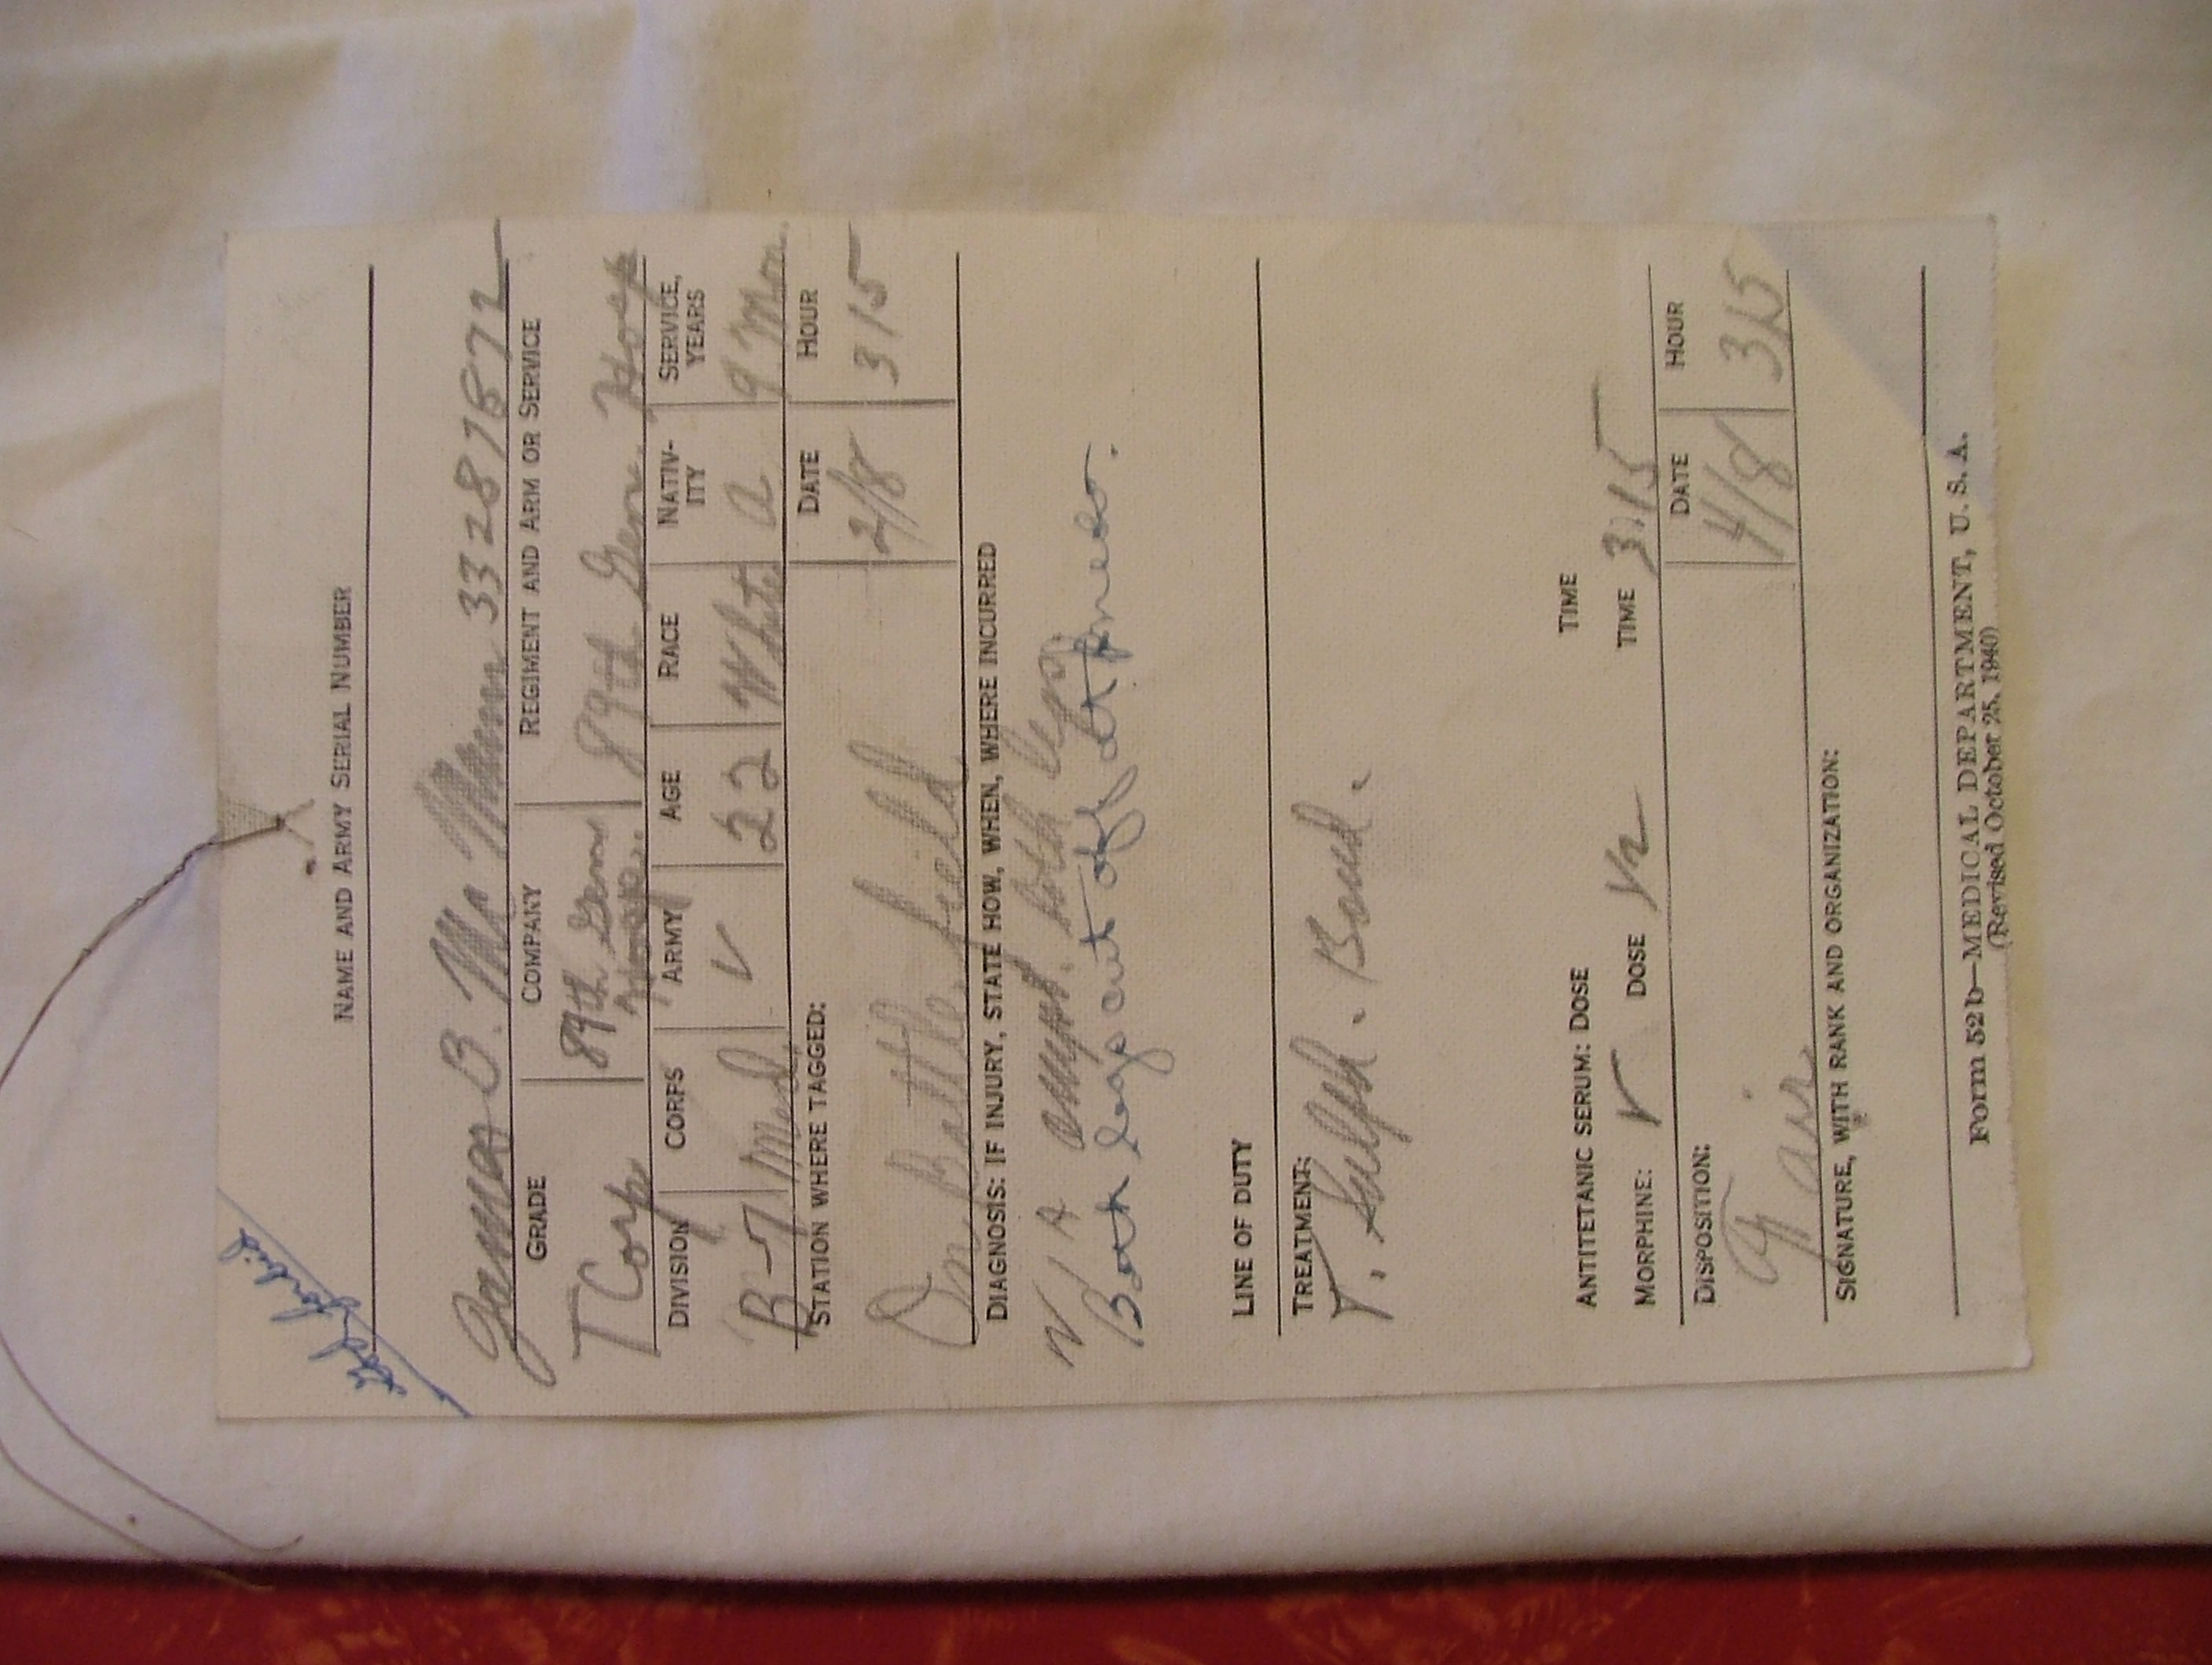 NAME AND ARMY SERIAL NUMBER
James B. Mc Minn 33287872
GRADE COMPANY REGIMENT AND ARM OR SERVICE
T Corp 89th Gen. Hosp. 89th Gen. Hosp
DIVISION CORPS ARMY AGE RACE NATIV-ITY SERVICE, YEARS
B-7 Med. V 22 White a 9 Mo.
STATION WHERE TAGGED: DATE HOUR
On Battle field 2/8 3 15
DIAGNOSIS: IF INJURY, STATE HOW, WHEN, WHERE INCURRED
W I A amput. both legs
Both legs cut off at knees.
LINE OF DUTY
TREATMENT:
T. Sulfa.
ANTITETANIC SERUM: DOSE TIME
MORPHINE: V DOSE 1/2 TIME 3:15
DISPOSITION: DATE HOUR
4/8 315
SIGNATURE, WITH RANK AND ORGANIZATION:
Form 52b—MEDICAL DEPARTMENT, U. S. A.
(Revised October 25, 1940)